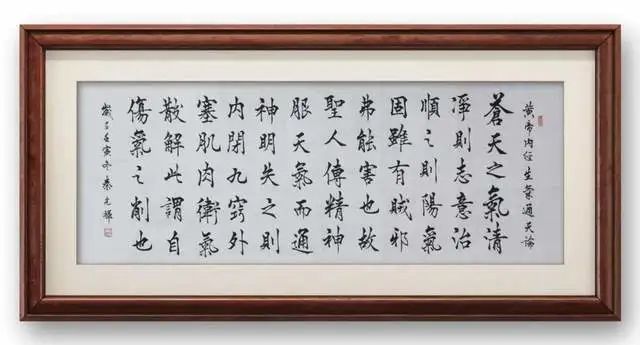 黄帝内経 生氣通天論
蒼天之氣清
淨則志意治
順之則陽氣
固雖有賊邪
弗能害也故
聖人傳精神
服天氣而通
神明失之則
内閉九竅外
塞肌肉衛氣
散解此謂自
傷氣之削也
歲壬寅冬